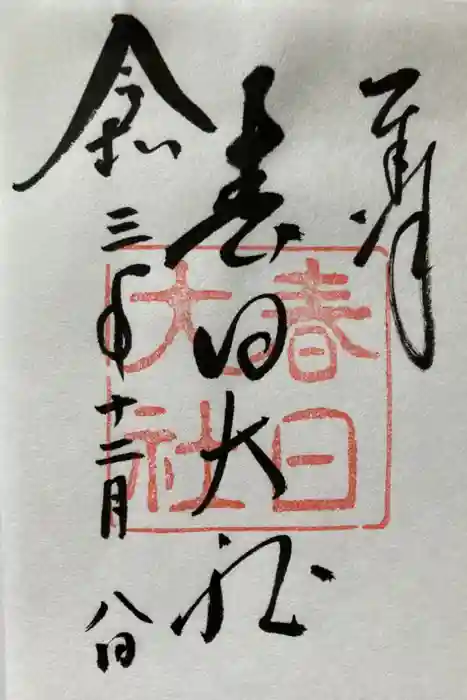 奉拝
春日大社
令和三年十二月八日
春日
大社